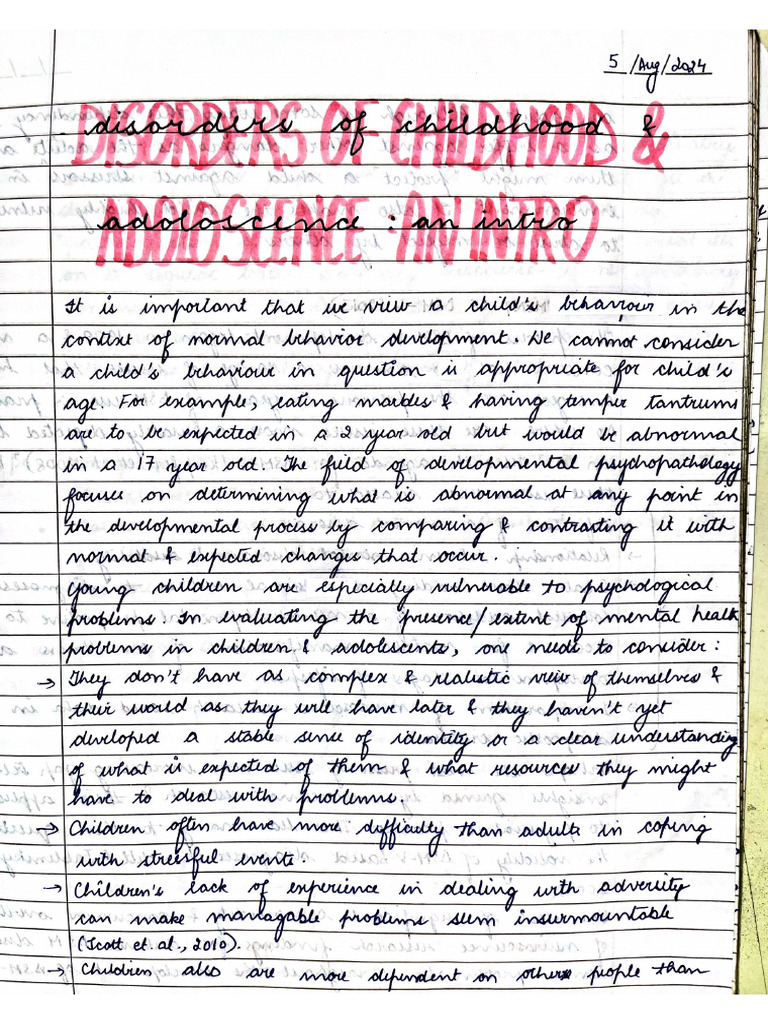 5/Aug/2024
DISORDERS OF CHILDHOOD &
disorders of childhood &
ADOLOSCENCE : AN INTRO
adoloscence : an intro
It is important that we view a child's behaviour in the
context of normal behavior development. We cannot consider
a child's behaviour in question is appropriate for child's
age. For example, eating marbles & having temper tantrums
are to be expected in a 2 year old but would be abnormal
in a 17 year old. The field of developmental psychopathology
focuses on determining what is abnormal at any point in
the developmental process by comparing & contrasting it with
normal & expected changes that occur.
Young children are especially vulnerable to psychological
problems. In evaluating the presence/extent of mental health
problems in children & adolescents, one needs to consider:
→ They don't have as complex & realistic view of themselves &
their world as they will have later & they haven't yet
developed a stable sense of identity or a clear understanding
of what is expected of them & what resources they might
have to deal with problems.
→ Children often have more difficulty than adults in coping
with stressful events.
→ Children's lack of experience in dealing with adversity
can make managable problems seem insurmountable
(Scott et.al., 2010).
→ Children also are more dependent on other people than